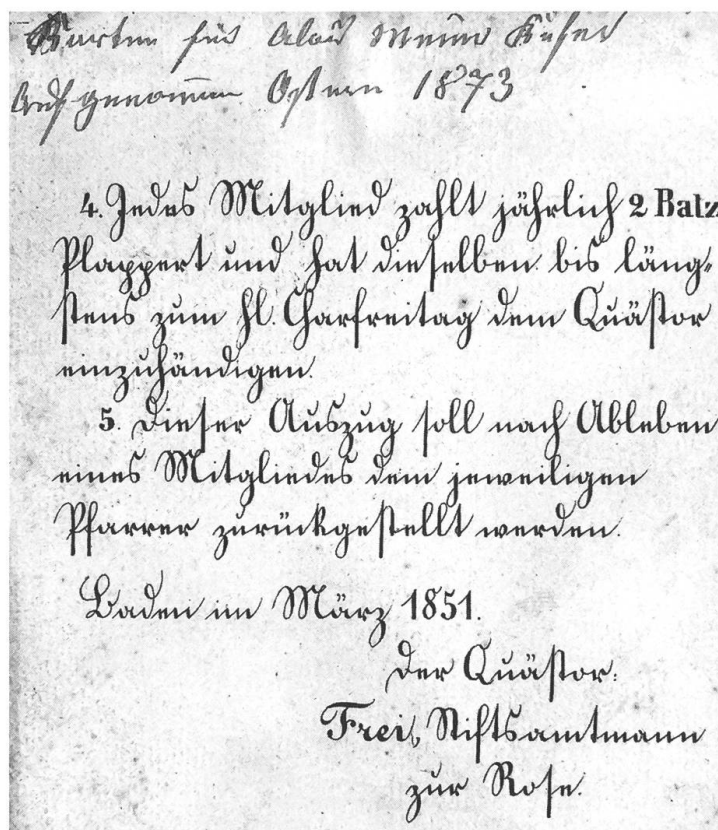 Karten für Alois
Aufgenommen Ostern 1873
4. Jedes Mitglied zahlt jährlich 2 Batz
Plappert und hat dieselben bis läng-
stens zum hl. Charfreitag dem Quästor
einzuhändigen.
5. Dieser Auszug soll nach Ableben
eines Mitgliedes dem jeweiligen
Pfarrer zurückgestellt werden.
Baden im März 1851.
Der Quästor:
Frei, Stiftsamtmann
zur Rose.